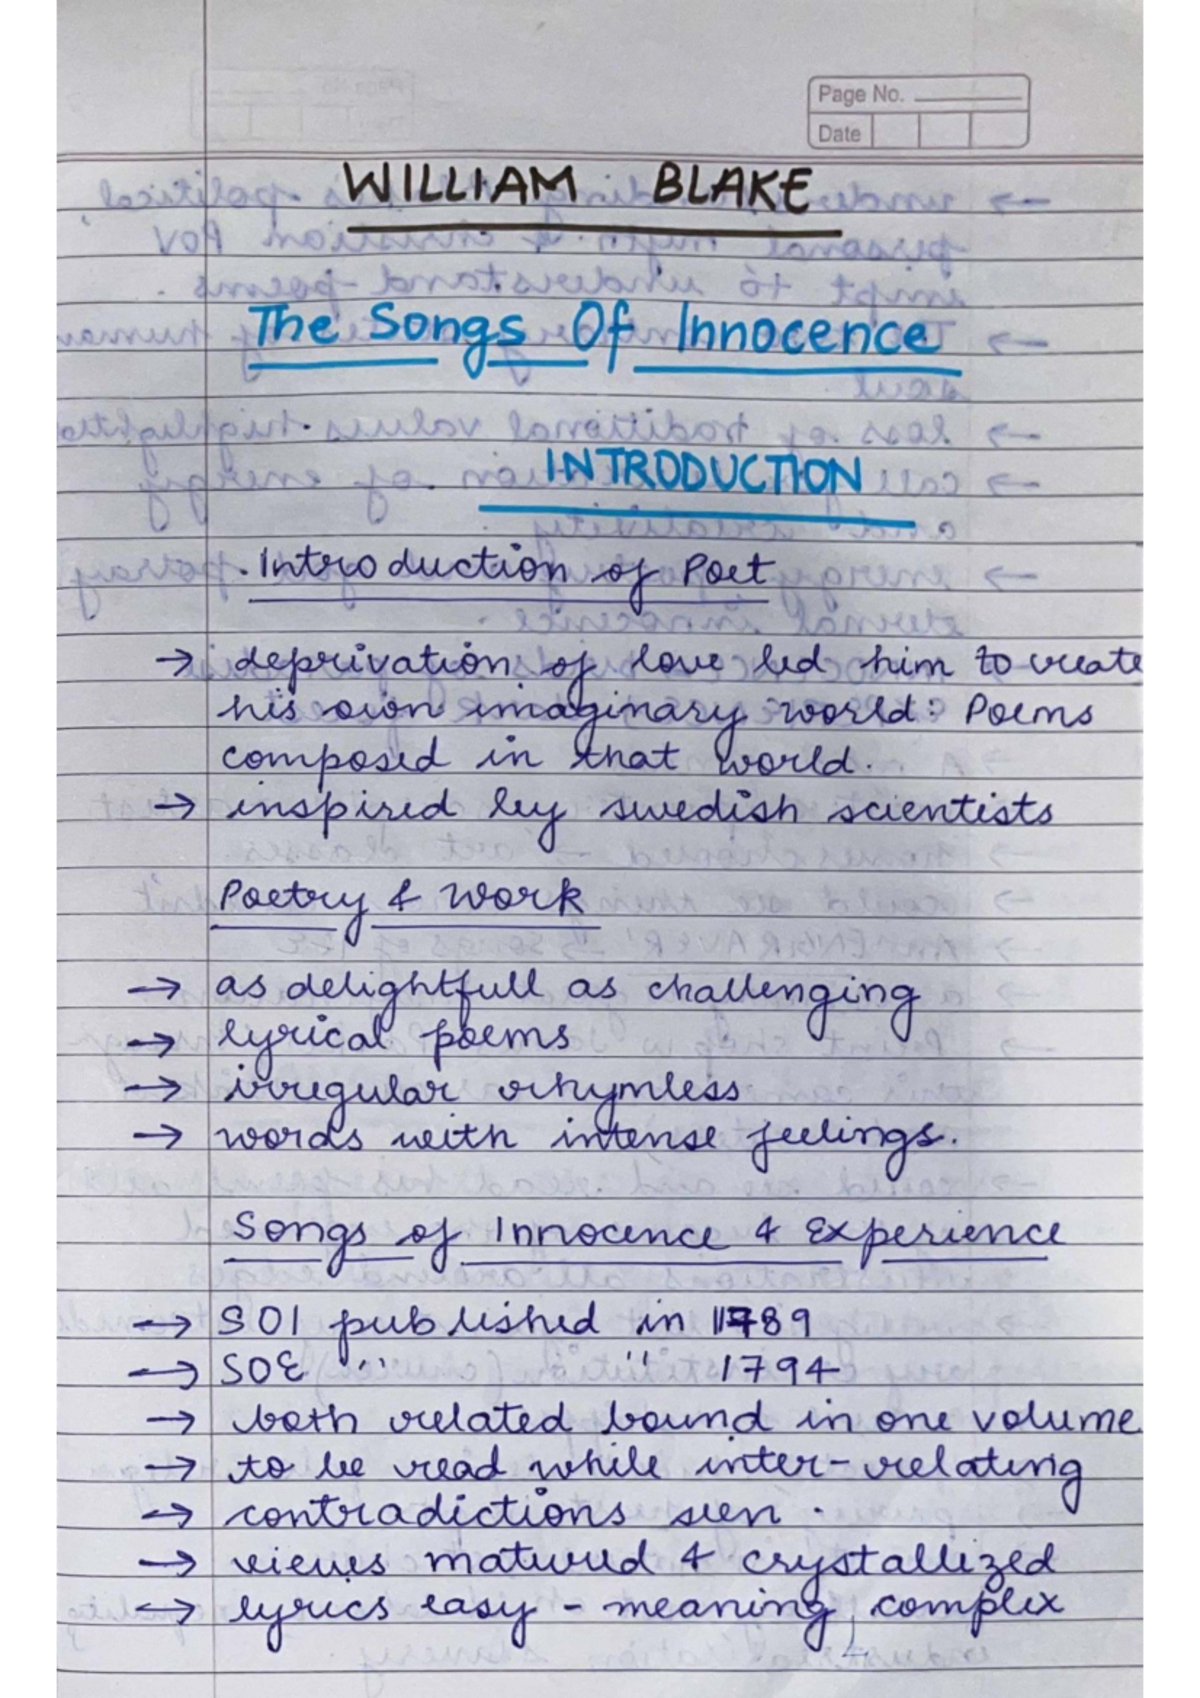 Page No.
Date
WILLIAM BLAKE
The Songs Of Innocence
INTRODUCTION
. Introduction of Poet
→ deprivation of love led him to create
his own imaginary world: Poems
composed in that world.
→ inspired by swedish scientists
Poetry & Work
→ as delightfull as challenging
→ lyrical poems
→ irregular rhymless
→ words with intense feelings.
Songs of Innocence & Experience
→ SOI published in 1789
→ SOE " " 1794
→ both related bound in one volume
→ to be read while inter-relating
→ contradictions seen.
→ views matured & crystallized
→ lyrics easy - meaning complex